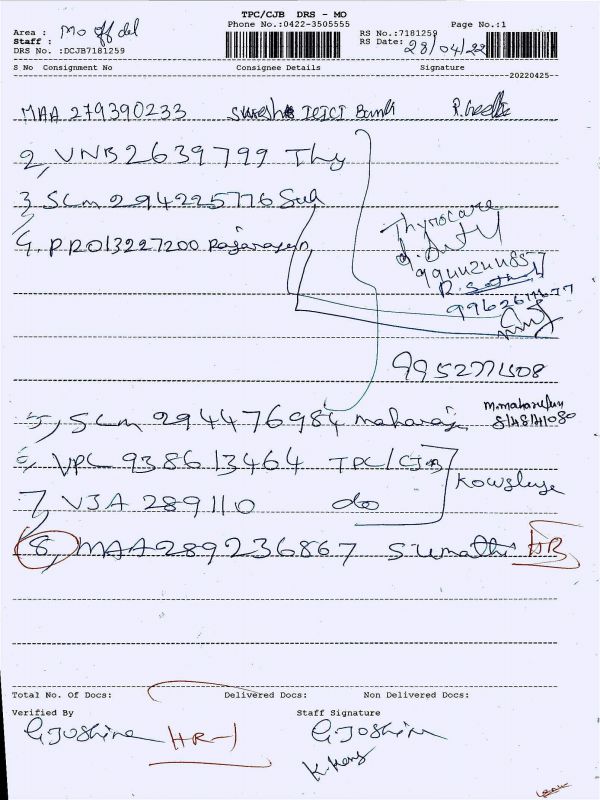 TPC/CJB DRS - MO
Phone No.:0422-3505555
Page No.:1
Area : Mo off del
Staff :
DRS No. :DCJB7181259
RS No.:7181259
RS Date: 28/04/22
S No Consignment No Consignee Details Signature
20220425
MAA 279390233 Suresh ICICI Bank
2, VNB 2639799 Thy
3, SCM 294225776
4, PRO13227200 Rajarajen
Thyrocare
9962611677
9952771508
5, SCM 294476984 maharaj
6, VPL 938613464 TPC/CJB
7, VJA 289110 do
8, MAA289236867 Sumathi HB
Total No. Of Docs: Delivered Docs: Non Delivered Docs:
Verified By Staff Signature
G. Joshina HR-1 G. Joshina